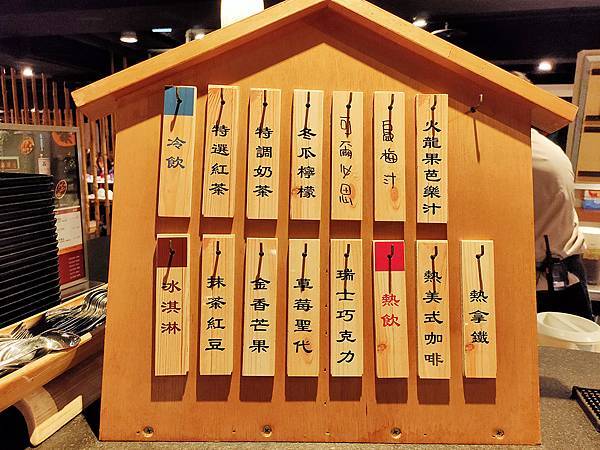 冷飲
特選紅茶
特調奶茶
冬瓜檸檬
可爾必思
烏梅汁
火龍果芭樂汁
冰淇淋
抹茶紅豆
金香芒果
草莓聖代
瑞士巧克力
熱飲
熱美式咖啡
熱拿鐵